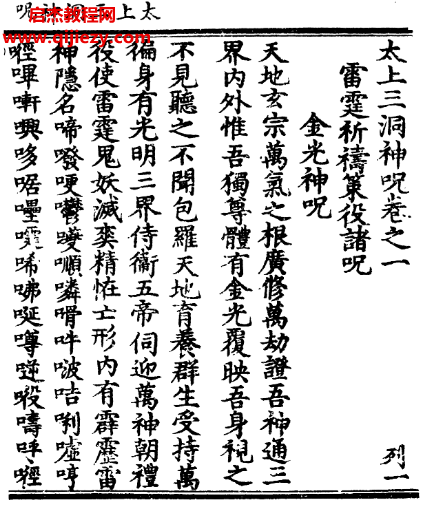 太上三洞神呪
启杰教程网
www.qijiezy.com
太上三洞神呪卷之一
列一
雷霆祈禱策役諸呪
金光神呪
天地玄宗萬氣之根廣修萬劫證吾神通三
界內外惟吾獨尊體有金光覆映吾身視之
不見聽之不聞包羅天地育養群生受持萬
徧身有光明三界侍衛五帝伺迎萬神朝禮
役使雷霆鬼妖滅爽精怪亡形內有霹靂雷
神隱名啼 哽 順 嘖 吽啵咭唎嘘哼
嗶 哆 唏 唌 噂 嚋呼